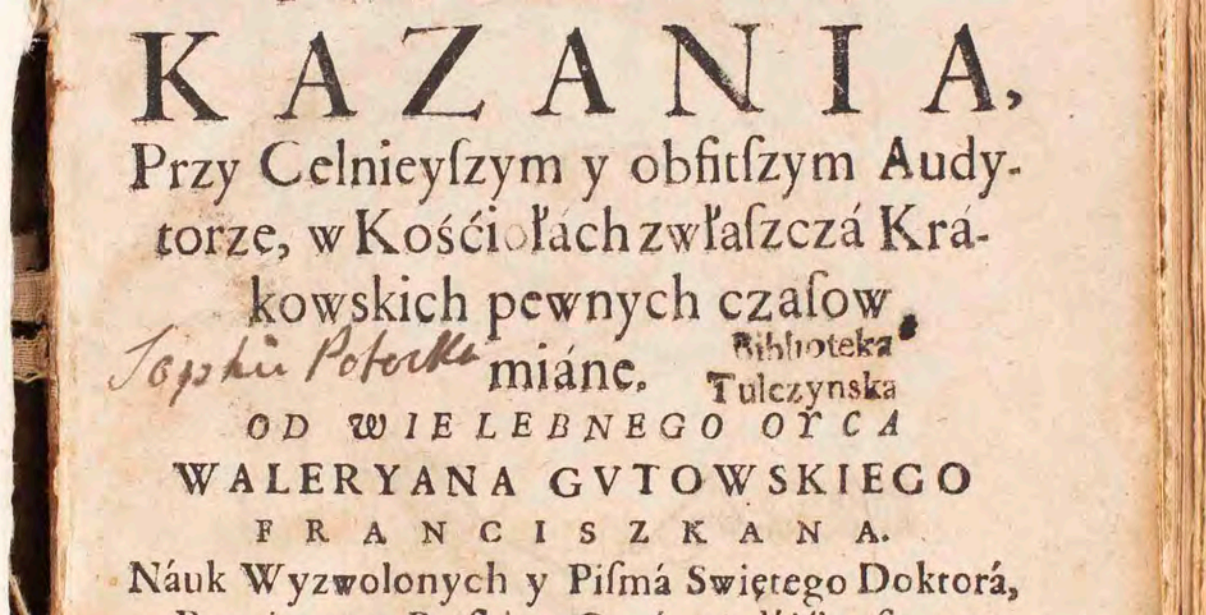 KAZANIA,
Przy Celnieyſzym y obfitſzym Audy-
torze, w Kośćiołách zwłaſzczá Krá-
kowskich pewnych czaſow
Sophie Potocka
miáne.
Biblioteka
Tulczynska
OD WIELEBNEGO OYCA
WALERYANA GVTOWSKIEGO
FRANCISZKANA.
Náuk Wyzwolonych y Piſmá Swiętego Doktorá,